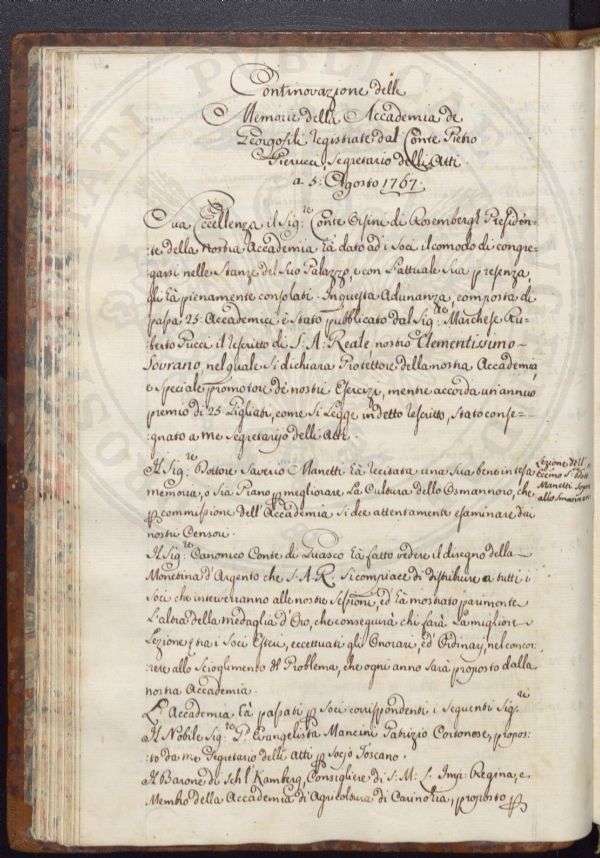 Continovazione delle
Memorie della Accademia de
Georgofili registrate dal Conte Pietro
Pierucci Segretario delli Atti
a 5. Agosto 1767.
Sua Eccellenza il Sig:re Conte Orsini di Rosembergh Presiden=
:te della nostra Accademia hà dato ad i Soci il comodo di congre=
garsi nelle Stanze del Suo Palazzo, e con l'attuale Sua presenza
gli hà pienamente consolati. In questa Adunanza, composta di
passa 25: Accademici è stato pubblicato dal Sig:re Marchese Ru=
berto Pucci il rescritto di S: A: Reale nostro Clementissimo
Sovrano, nel quale Si dichiara Protettore della nostra Accademia
e speciale promotore dè nostri Esercizi, mentre accorda un'annuo
premio di 25. Gigliati, come Si legge in detto rescritto, Stato conse=
:gnato a me Segretario delli Atti.
Il Sig:re Dottore Saverio Manetti hà recitata una Sua bene intesa
memoria, o Sia Piano p migliorare la Cultura dello Osmannoro, che
p commissione dell'Accademia Si dee attentamente esaminare dai
nostri Censori.
Lezione dell'
Manetti Sopra
Il Sig:re Canonico Conte di Guasco hà fatto vedere il disegno della
Monetina d'Argento che S. A. R. Si compiace di distribuire a tutti i
Soci che interverranno alle nostre Sessioni, ed hà mostrato parimente
l'altra della medaglia d'Oro, che conseguirà chi farà la migliore
Lezione tra i Soci Esteri, eccettuati gli Onorari, ed Ordinarj, nel concor=
:rere allo Scioglimento del Problema, che ogni anno Sarà proposto dalla
nostra Accademia.
L'Accademia hà passati p Soci corrispondenti i Seguenti Sig:ri
Il Nobile Sig:re P: Evangelista Mancini Patrizio Cortonese, propos=
:to da me Segretario delli Atti p Socio Toscano.
Il Barone di Schl Kamberg, Consigliere di S: M: l' Imp: Regina, e
Membro della Accademia di Agricoltura di Carintia, proposto p